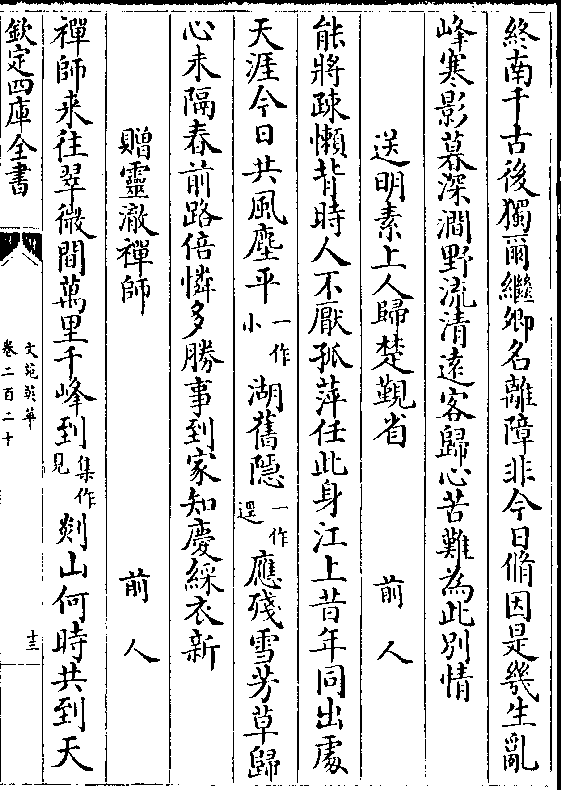 終南千古後獨爾繼卿名離障非今日脩因是幾生亂
峰寒影暮深澗野流清遠客歸心苦難為此別情
送明素上人歸楚覲省　前人
能將疎懶背時人不厭孤萍任此身江上昔年同出處
天涯今日共風塵平一作小湖舊隠一作逕應殘雪芳草歸
心未隔春前路倍憐多勝事到家知慶綵衣新
贈靈澈禪師　前人
禪師来往翠微間萬里千峰到集作見剡山何時共到天
欽定四庫全書
文苑英華
卷二百二十
十三